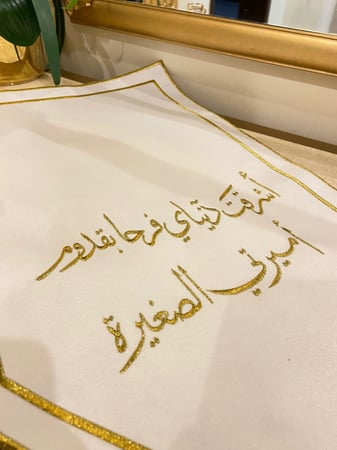 أشرقت دنياي فرحا بقدوم
أميرتي الصغيرة